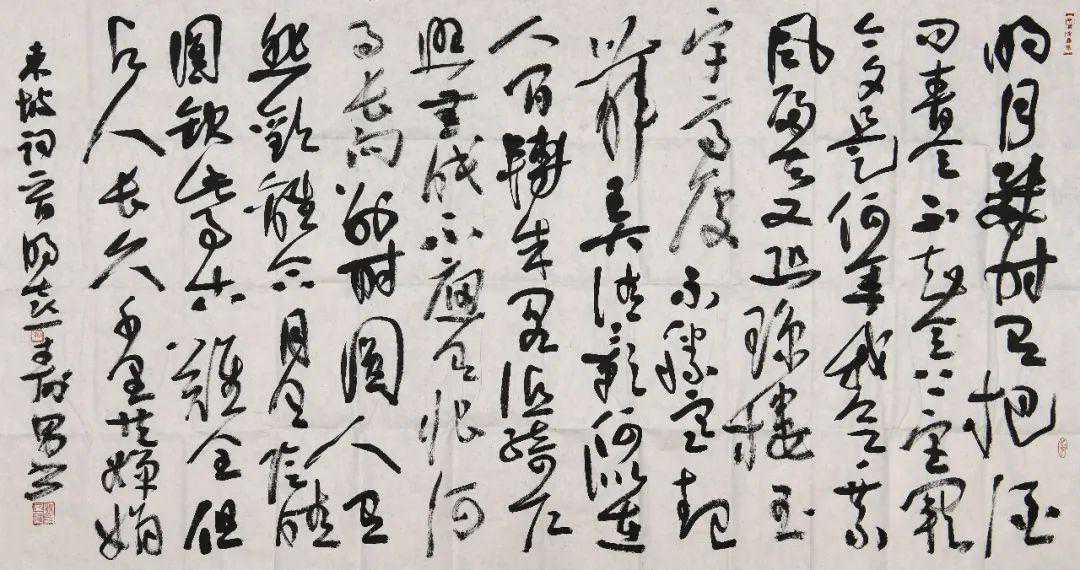 明月幾時有把酒
问青天不知天上宮闕
今夕是何年我欲乘
風歸去又恐瓊樓玉
宇高處不勝寒起
舞弄清影何似在
人間轉朱閣低綺户
照無眠不應有恨何
事長向別時圓人有
悲歡離合月有陰晴
圓缺此事古難全但
願人長久千里共嬋娟
東坡詞